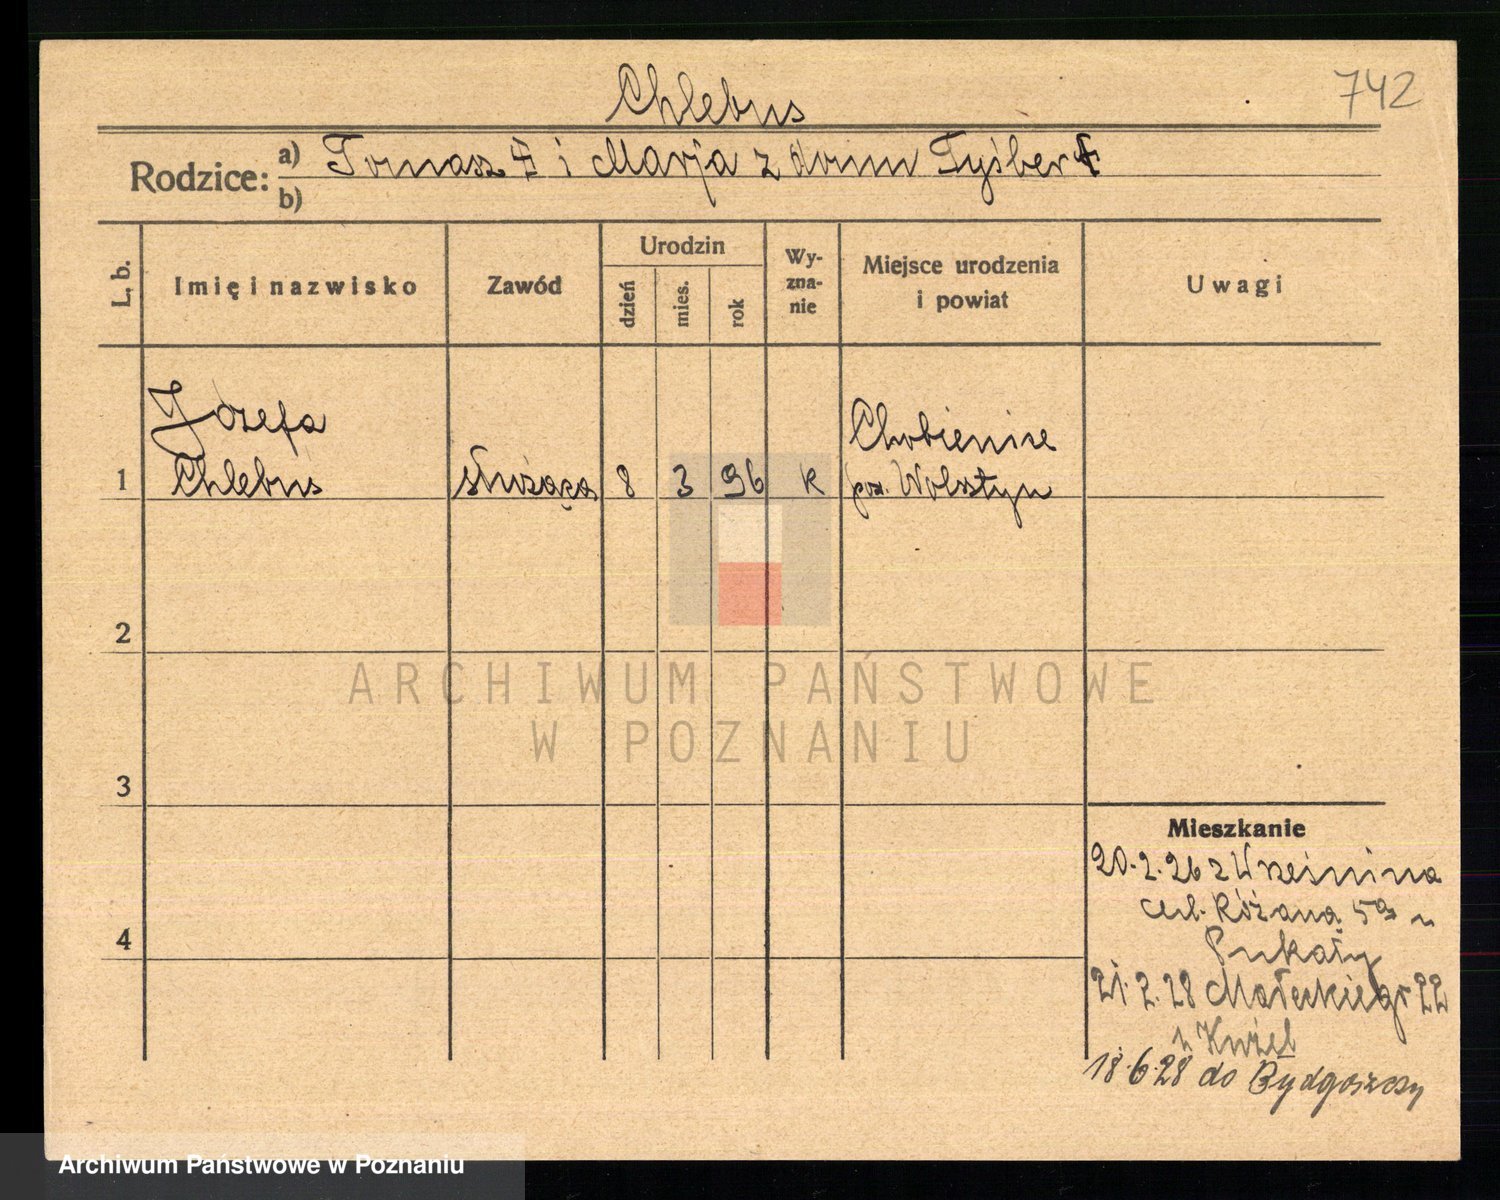 742
Chlebus
Rodzice: a) Tomasz i Marja z domu Tyśber
b)
L. b.
Imię i nazwisko
Zawód
Urodzin
dzień
mies.
rok
Wy-
zna-
nie
Miejsce urodzenia
i powiat
Uwagi
Józefa
Chlebus
1
służąca
8
3
96
k
Chobienice
pow. Wolsztyn
2
3
4
Mieszkanie
20.2.26 z
Różana 5a u
Pukały
21.2.28 Małeckiego 22
u
18.6.28 do Bydgoszczy
ARCHIWUM PAŃSTWOWE
W POZNANIU
Archiwum Państwowe w Poznaniu